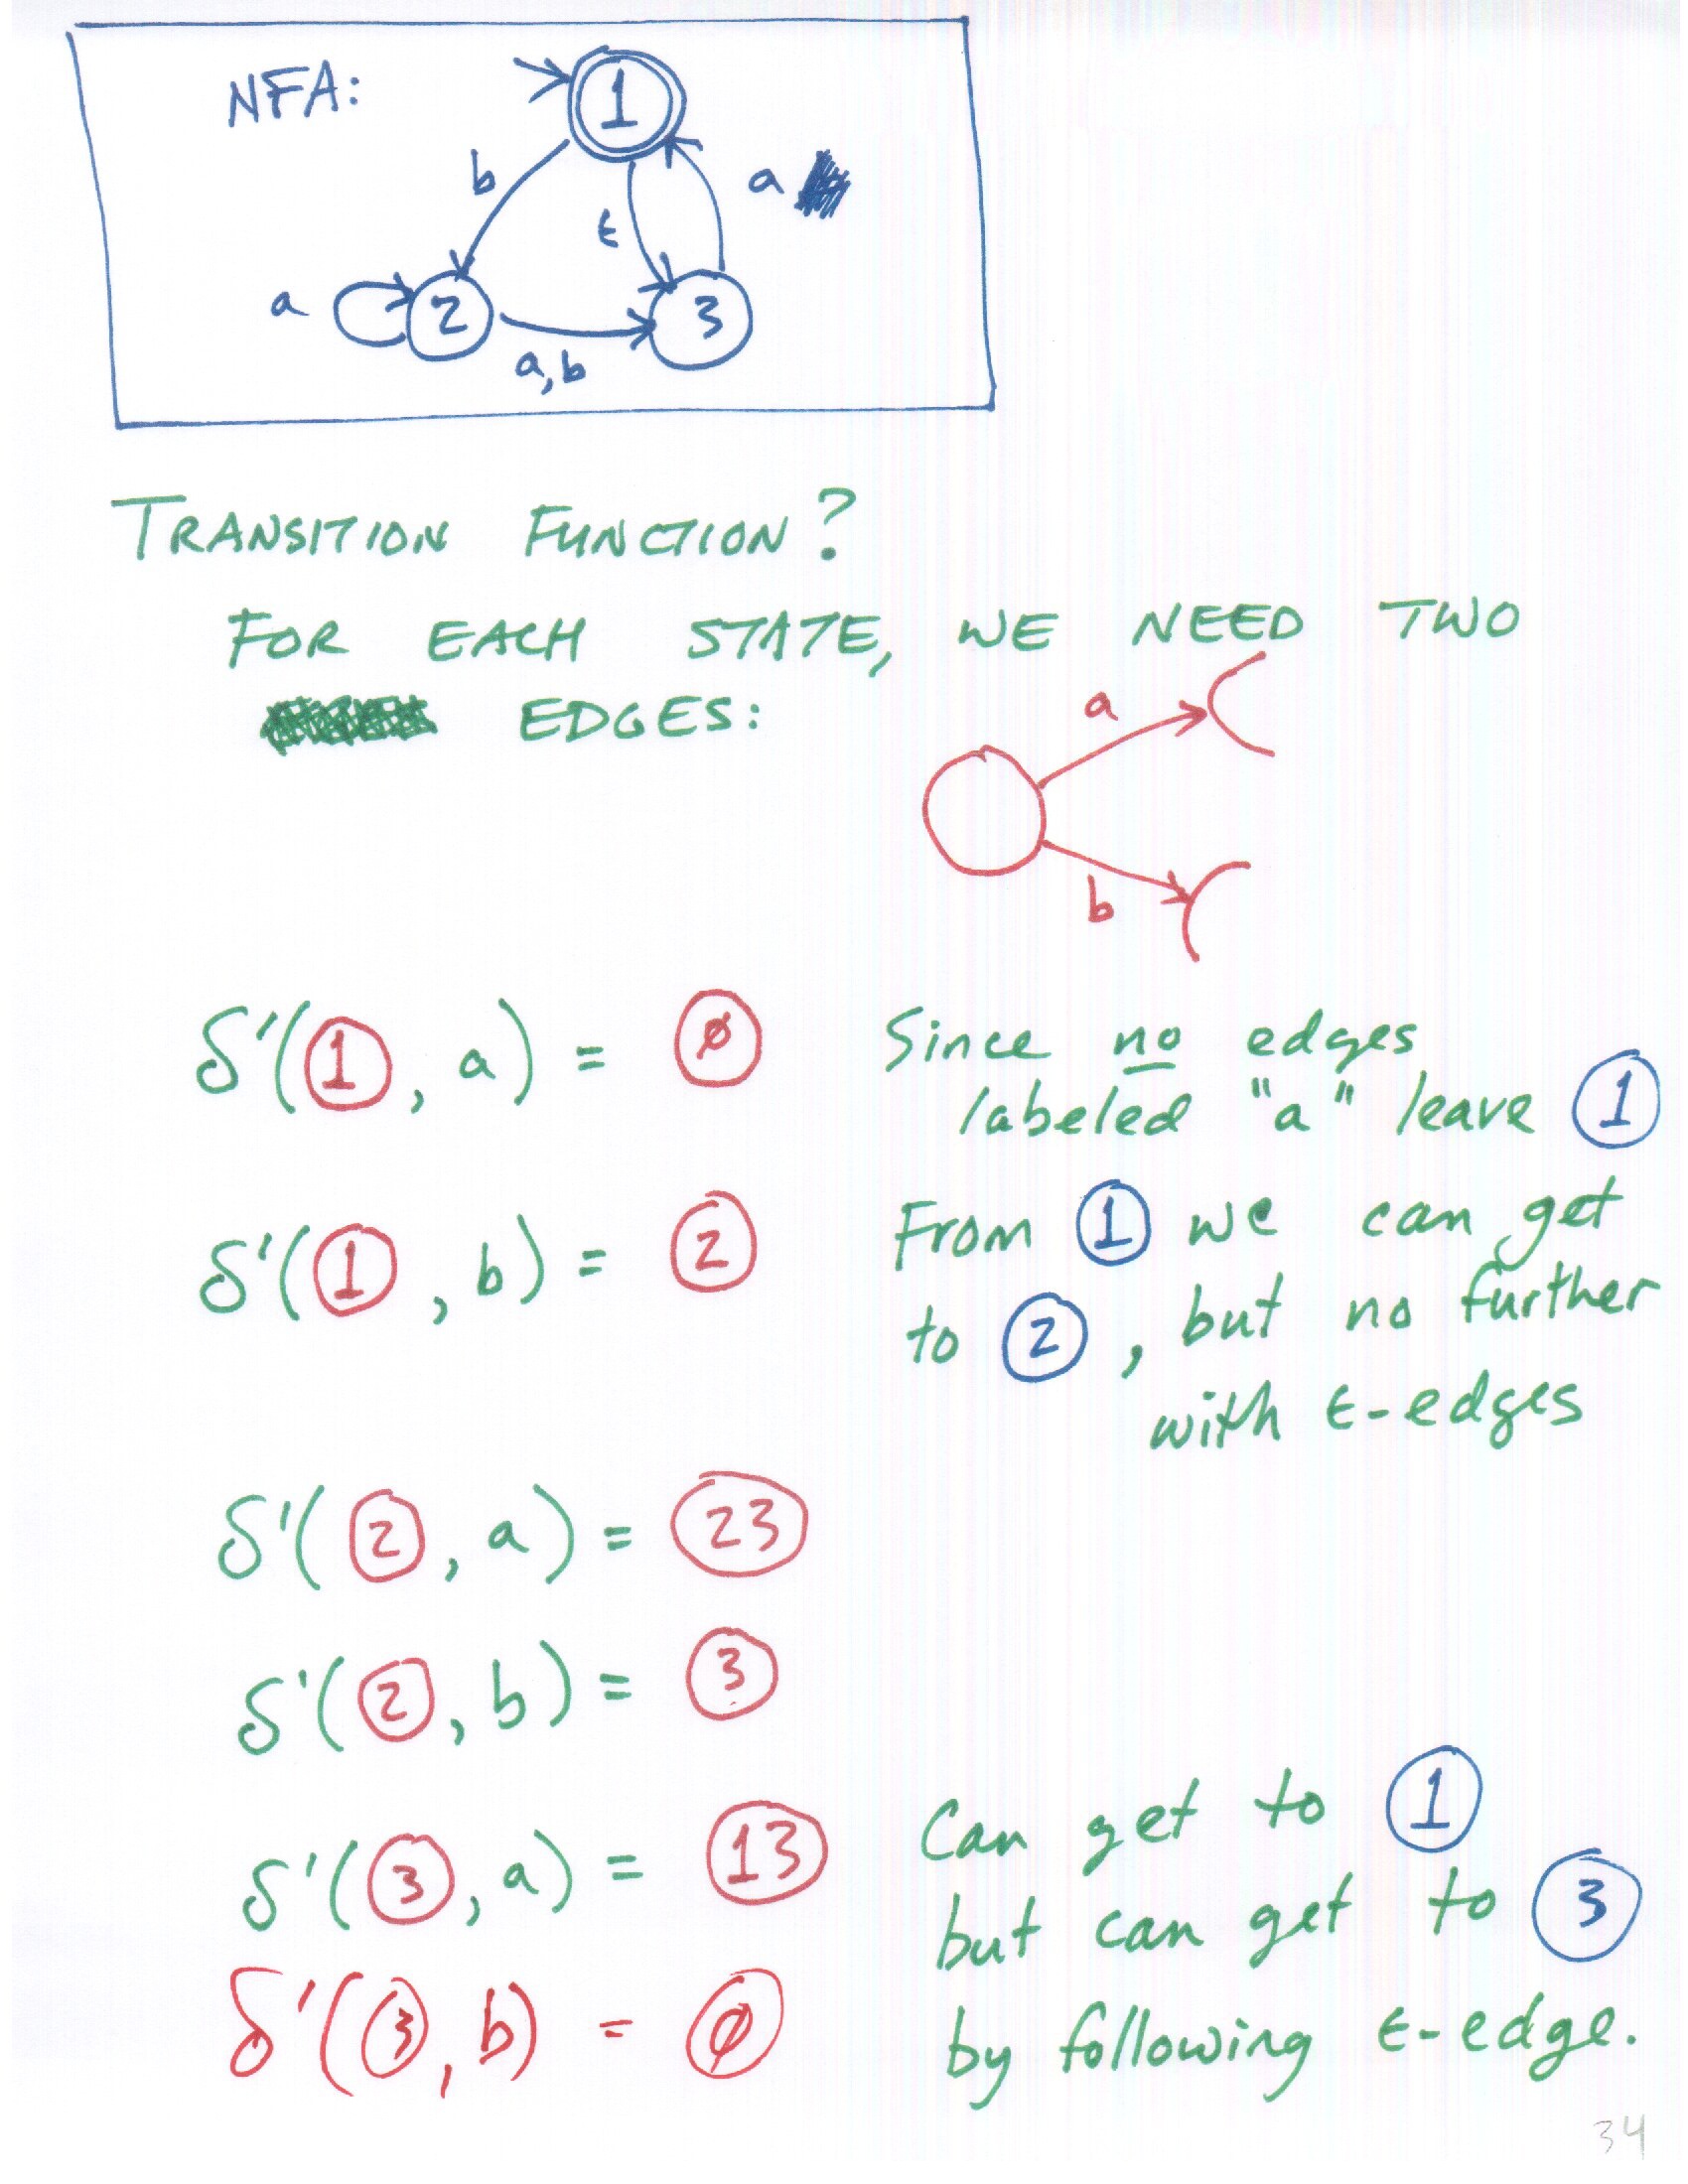 NFA:
1
b
a
ε
a
2
3
a,b
TRANSITION FUNCTION?
FOR EACH STATE, WE NEED TWO
EDGES:
a
b
δ'(1, a) = ∅
Since no edges
labeled "a" leave 1
δ'(1, b) = 2
From 1 we can get
to 2, but no further
with ε-edges
δ'(2, a) = 23
δ'(2, b) = 3
δ'(3, a) = 13
Can get to 1
but can get to 3
by following ε-edge.
δ'(3, b) = ∅
34